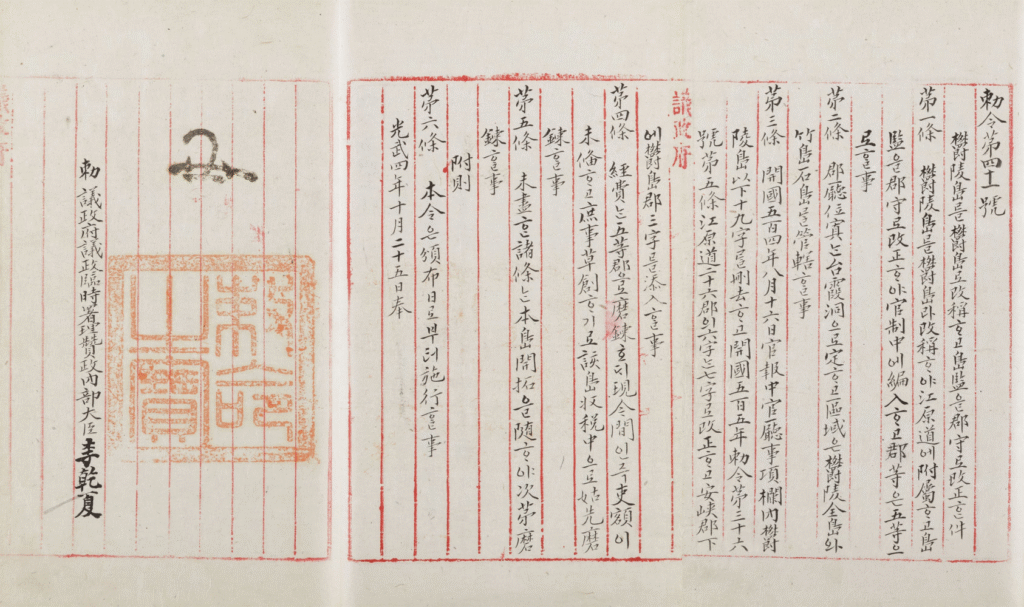 勅令第四十一號
欝陵島를欝島로改稱ᄒᆞ고島監을郡守로改正ᄒᆞᆫ件
第一條 欝陵島를欝島라改稱ᄒᆞ야江原道에附屬ᄒᆞ고島
監을郡守로改正ᄒᆞ야官制中에編入ᄒᆞ고郡等은五等으
로ᄒᆞᆯ事
第二條 郡廳位寘ᄂᆞᆫ台霞洞으로定ᄒᆞ고區域은欝陵全島와
竹島石島를管轄ᄒᆞᆯ事
第三條 開國五百四年八月十六日官報中官廳事項欄內欝
陵島以下十九字를刪去ᄒᆞ고開國五百五年勅令第三十六
號第五條江原道二十六郡의六字ᄂᆞᆫ七字로改正ᄒᆞ고安峽郡下
議政府
에欝島郡三字를添入ᄒᆞᆯ事
第四條 經費ᄂᆞᆫ五等郡으로磨鍊호ᄃᆡ現今間인즉吏額이
未備ᄒᆞ고庶事草創ᄒᆞ기로該島收稅中으로姑先磨
鍊ᄒᆞᆯ事
第五條 未盡ᄒᆞᆫ諸條ᄂᆞᆫ本島開拓을隨ᄒᆞ야次第磨
鍊ᄒᆞᆯ事
附則
第六條 本令은頒布日로부터施行ᄒᆞᆯ事
光武四年十月二十五日奉
勅命之寶
勅 議政府議政臨時署理贊政內部大臣 李乾夏